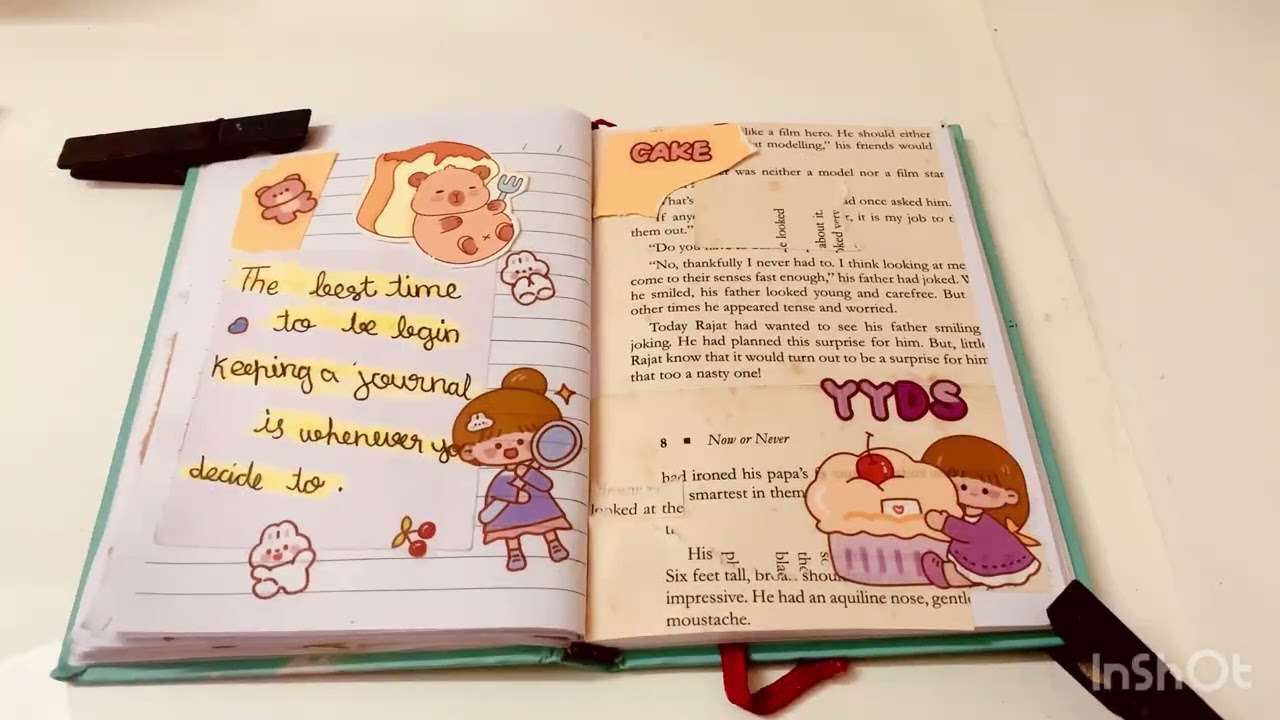 The best time
to be begin
keeping a journal
is whenever
decide to.
CAKE
like a film hero. He should either
modelling,” his friends would
was neither a model nor a film star
once asked him.
it is my job to
them out.”
“Do you
e looked
about it.
“No, thankfully I never had to. I think looking at me
come to their senses fast enough,” his father had joked.
he smiled, his father looked young and carefree. But
other times he appeared tense and worried.
Today Rajat had wanted to see his father smiling
joking. He had planned this surprise for him. But,
Rajat know that it would turn out to be a surprise for him
that too a nasty one!
YYDS
8 ■ Now or Never
had ironed his papa’s
smartest in them
looked at the
His
Six feet tall,
impressive. He had an aquiline nose,
moustache.
InShOt